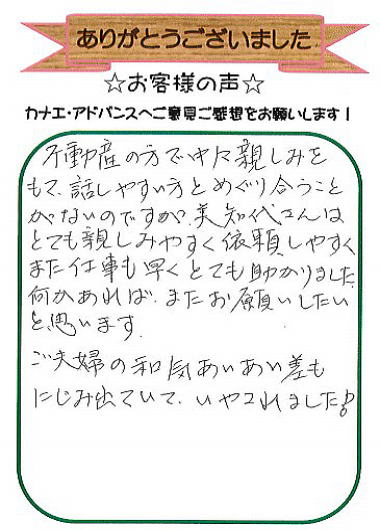 ありがとうございました
☆お客様の声☆
カナエ・アドバンスへご意見ご感想をお願いします！
不動産の方で中々親しみを
もて、話しやすい方とめぐり合うこと
がないのですが、美知代さんは
とても親しみやすく依頼しやすく
また仕事も早くとても助かりました。
何かあれば、またお願いしたい
と思います。
ご夫婦の和気あいあい差も
にじみ出ていて、いやされました♪